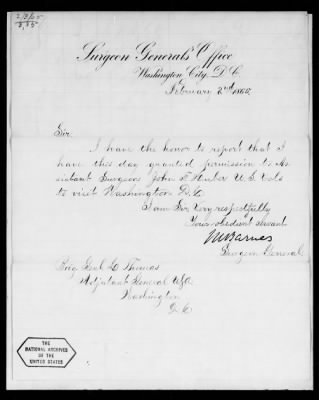 Surgeon General's Office
Washington City, D.C.
February 2nd 1865
Sir
I have the honor to report that I
have this day granted permission to As
sistant Surgeon John F. Huber U.S. Vols
to visit Washington D.C.
I am Sir, Very respectfully
Your obedient servant
Barnes
Surgeon General
Brig Genl L Thomas
Adjutant General USA
Washington
D.C
THE
NATIONAL ARCHIVES
OF THE
UNITED STATES